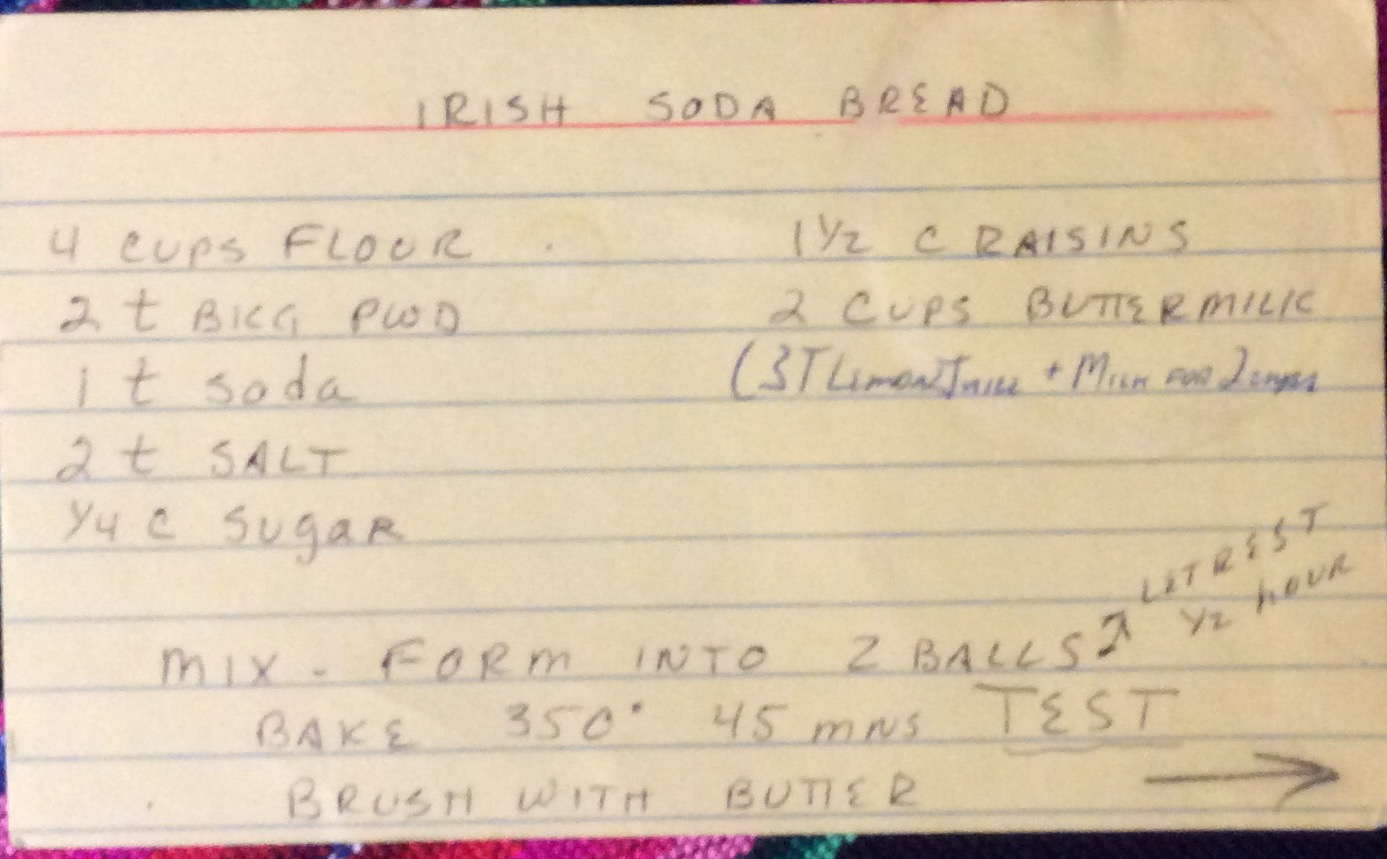 IRISH SODA BREAD
4 CUPS FLOUR
2 t BKG PWD
1 t soda
2 t SALT
1/4 C SUgAR
1 1/2 C RAISINS
2 CUPS BUTTERMILK
(3T Lemon Juice + Milk FOR 2 cups
MIX - FORM INTO 2 BALLS
LET REST
1/2 HOUR
BAKE 350° 45 MNS TEST
BRUSH WITH BUTTER